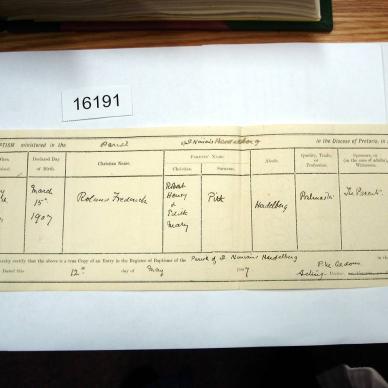 16191
PTISM ministered in the Parish of S Ninian's Heidelberg in the Diocese of Pretoria, in
Declared Day of Birth.
Christian Name.
PARENTS' NAME.
Christian.
Surname.
Abode.
Quality, Trade, or Profession.
Sponsors, or (in the case of adults), Witnesses.
March 15th 1907
Frederick
Robert Henry & Edith Mary
Pitt
Heidelberg
The Parents
hereby certify that the above is a true Copy of an Entry in the Register of Baptisms of the Parish of S Ninian's Heidelberg in the
Dated this 12th day of May 1907
Acting Rector